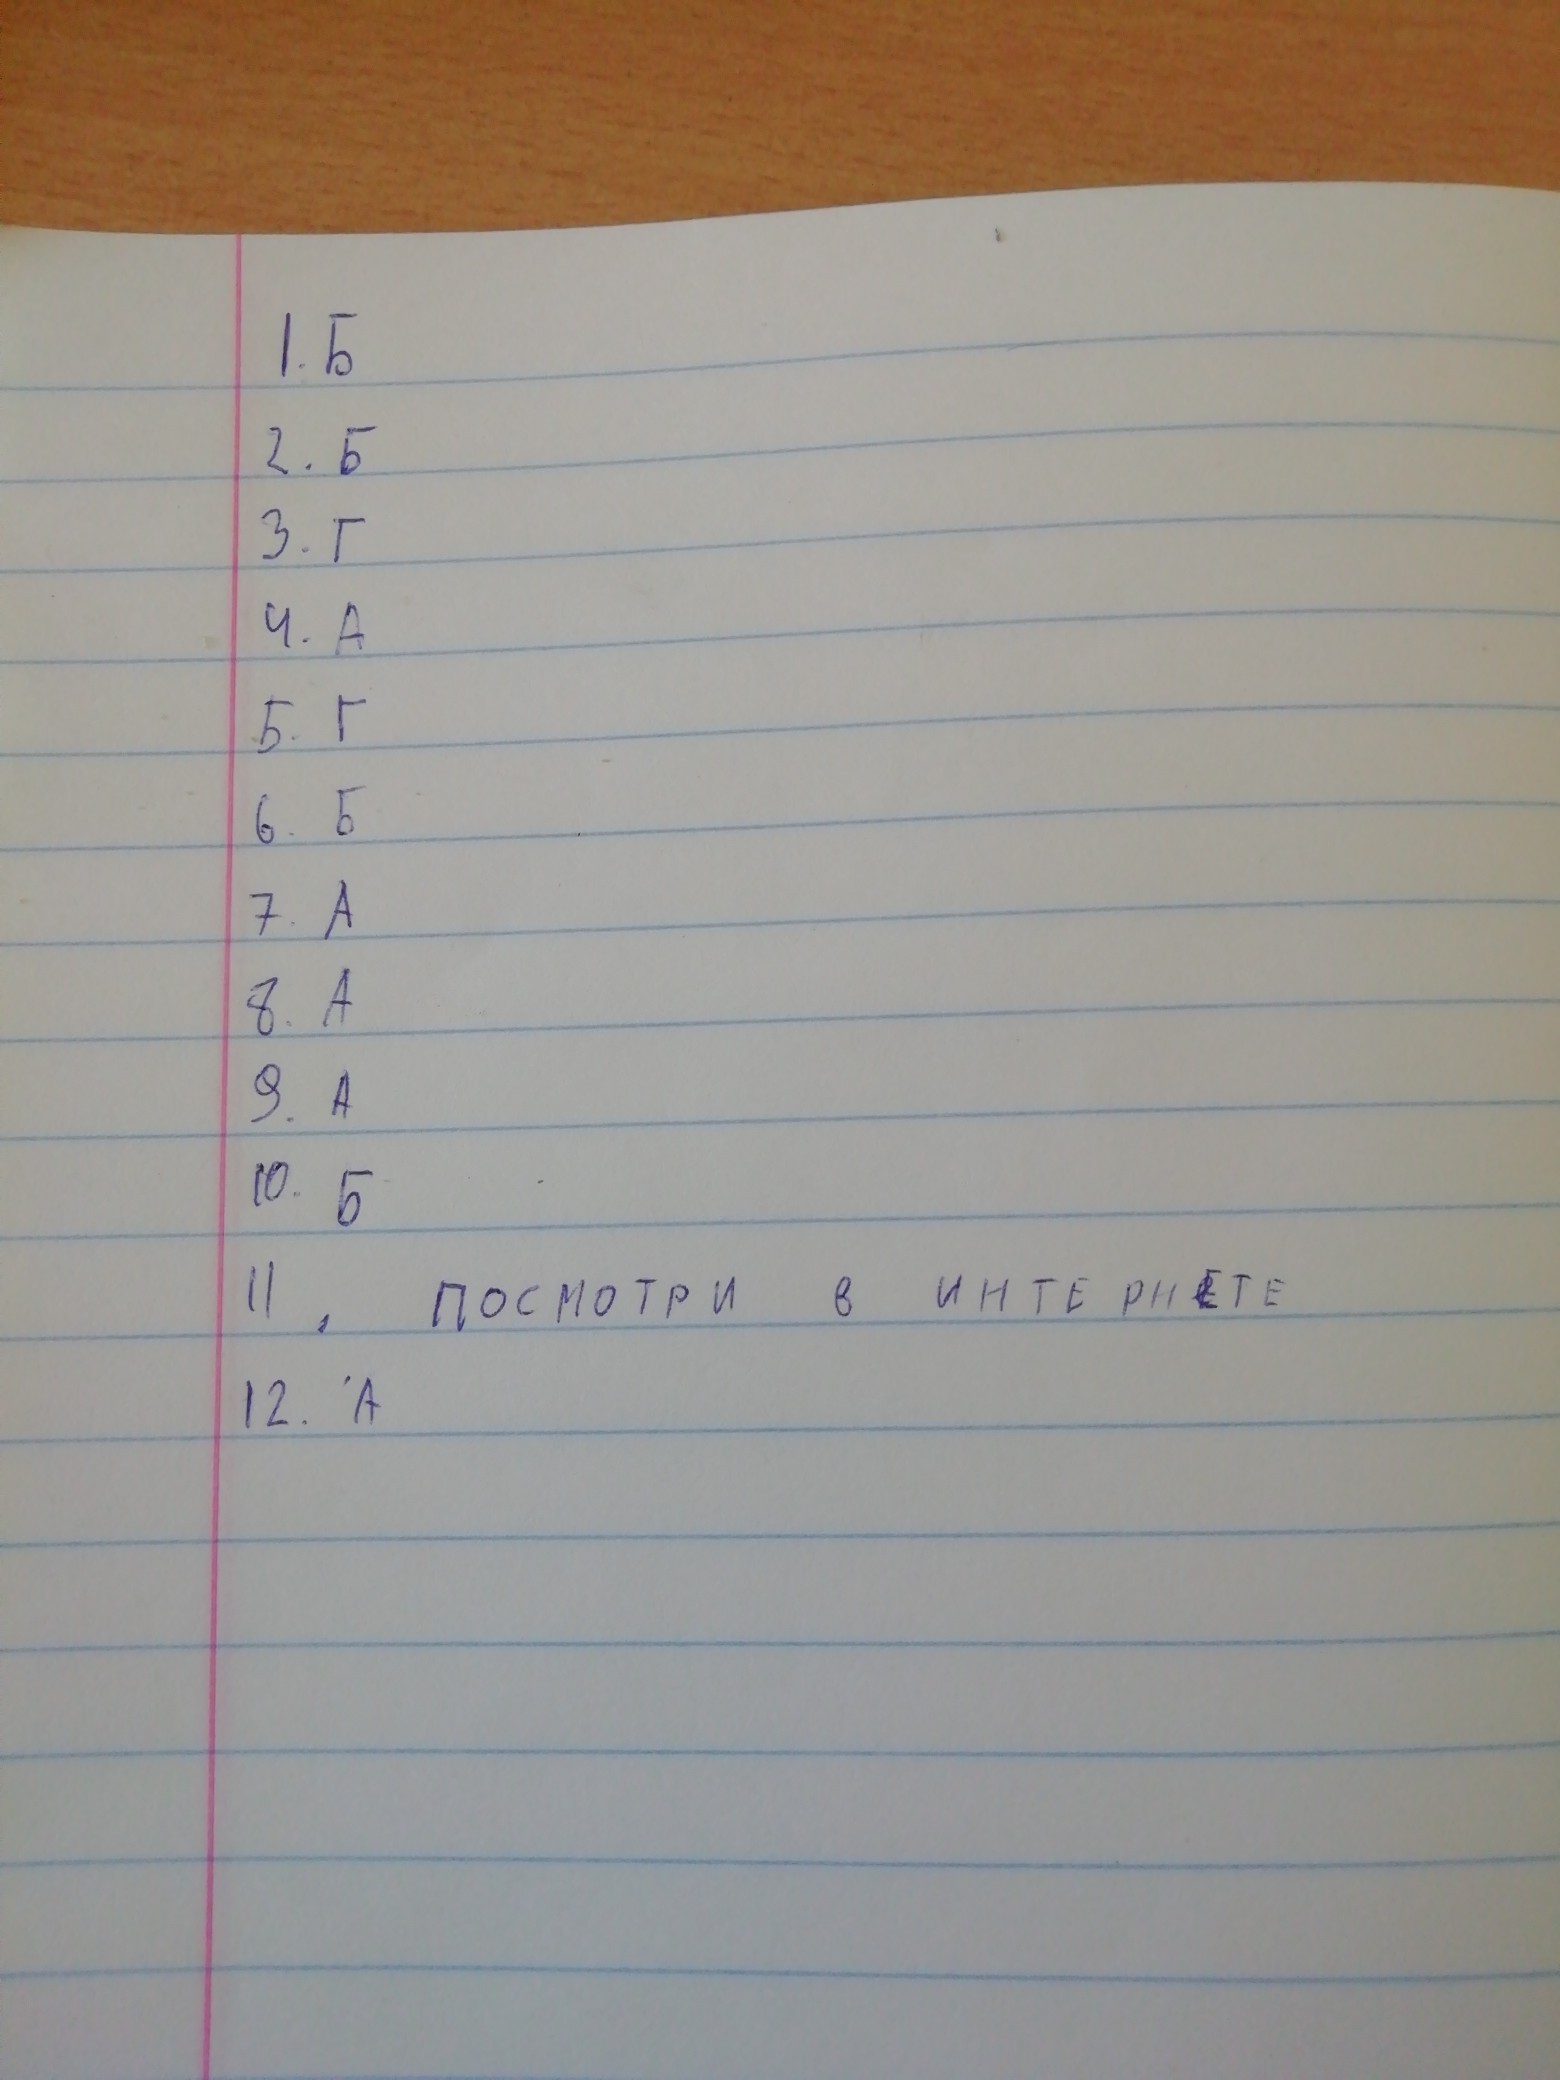 1. Б
2. Б
3. Г
4. А
5. Г
6. Б
7. А
8. А
9. А
10. Б
11, ПОСМОТРИ В ИНТЕРНЕТЕ
12. А